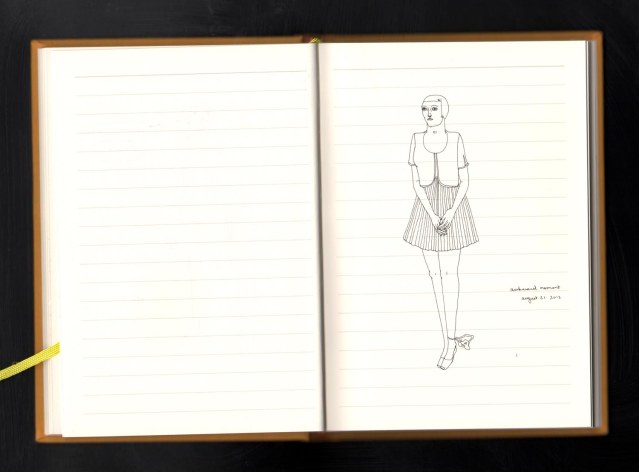 awkward moment
august 21 2012